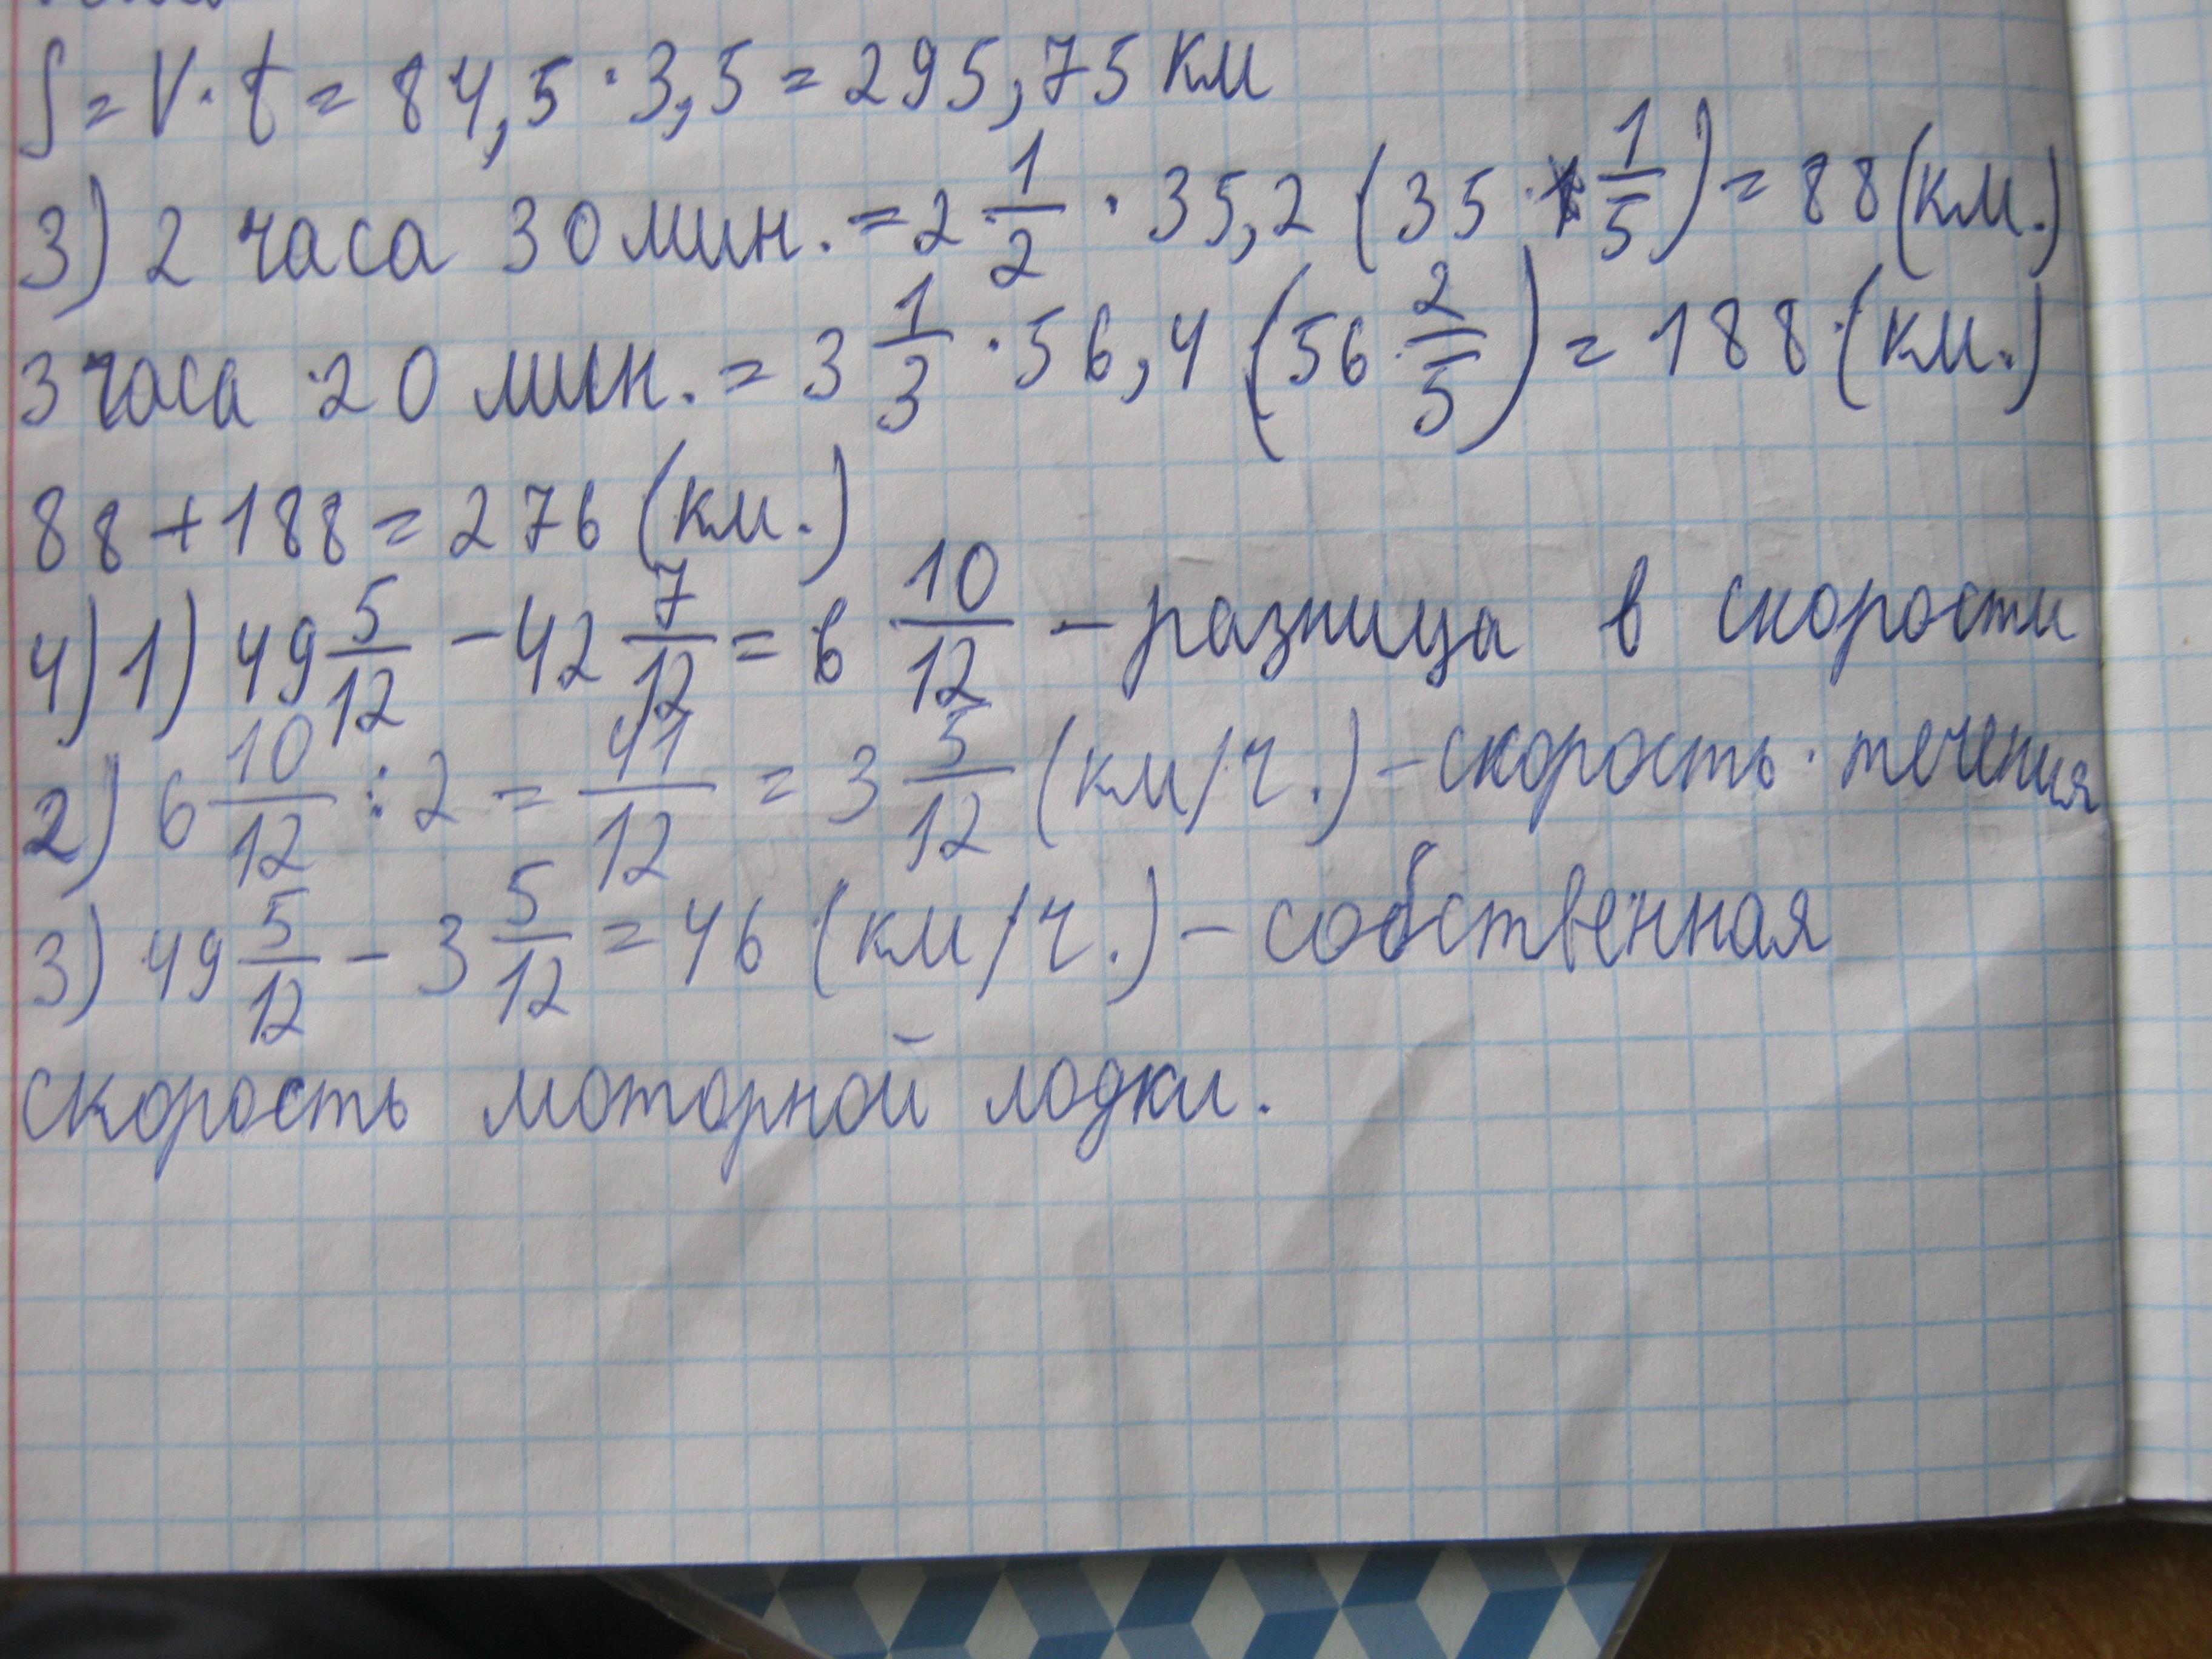 S = V · t = 84,5 · 3,5 = 295,75 км
3) 2 часа 30 мин. = 2 1/2 · 35,2 (35 1/5) = 88 (км.)
3 часа 20 мин. = 3 1/3 · 56,4 (56 2/5) = 188 (км.)
88 + 188 = 276 (км.)
4) 1) 49 5/12 - 42 7/12 = 6 10/12 - разница в скорости
2) 6 10/12 : 2 = 41/12 = 3 5/12 (км/ч.) - скорость течения
3) 49 5/12 - 3 5/12 = 46 (км/ч.) - собственная
скорость моторной лодки.